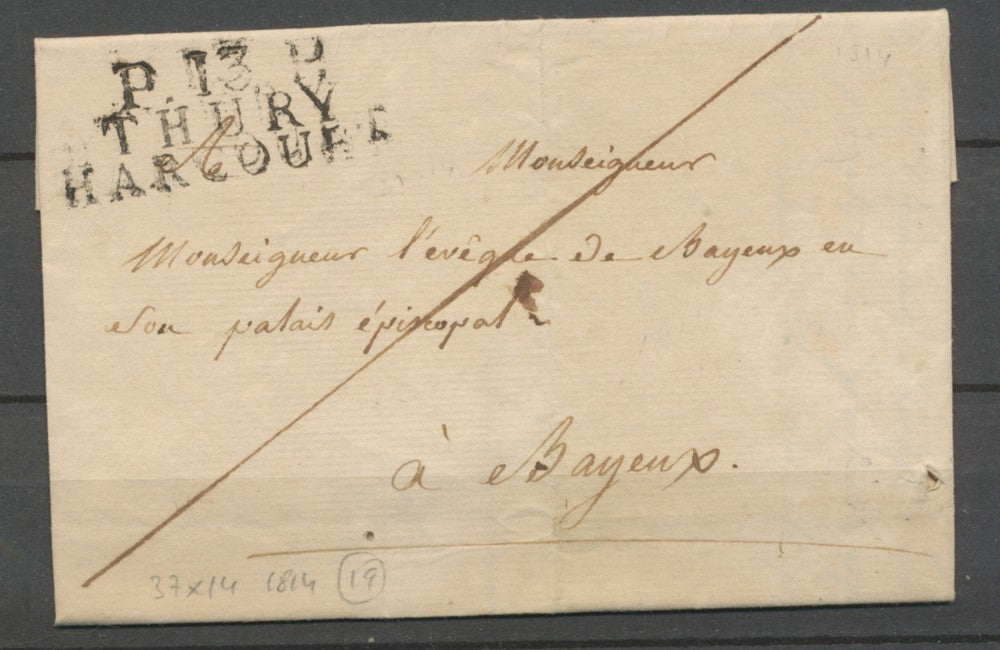 P 13 P
THURY
HARCOURT
A
Monseigneur
Monseigneur l'evêque de Bayeux en
son palais épiscopal
à Bayeux.
37x14 1814 19
1814